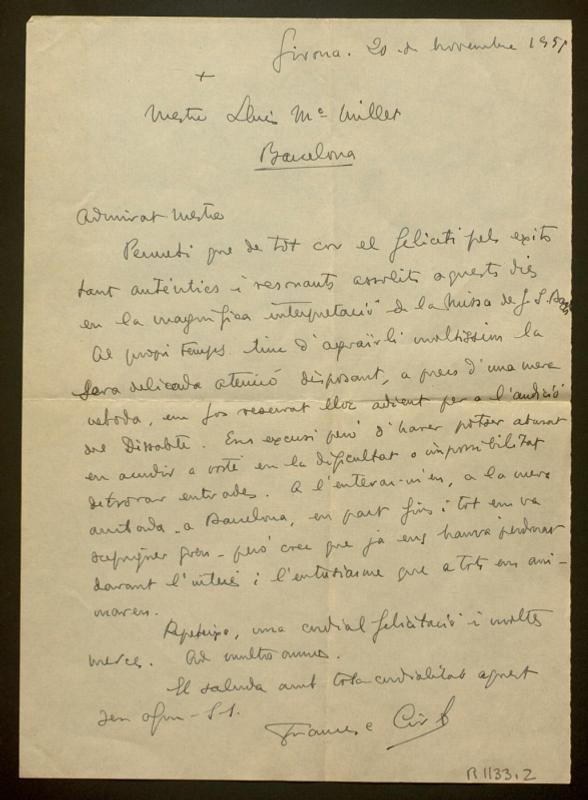 Girona. 20 de novembre 195
+
Mestre Lluis Mª Millet
Barcelona
Admirat Mestre
Permeti que de tot cor el feliciti pels exits
tant autèntics i resonants assolits aquests dies
en la magnifica interpretació de la Missa de J. S. Bach
Al propi temps tinc d'agrair-li moltissim la
seva delicada atenció disposant, a precs d'una meva
neboda, em fos reservat lloc adient per a l'audició
de Dissabte. Ens excusi però d'haver potser abusat
en acudir a vostè en la dificultat o impossibilitat
de trovar entrades. A l'enterar-m'en, a la meva
arribada a Barcelona, en part fins i tot em va
greu - però crec que ja ens haurà perdonat
davant l'interès i l'entusiasme que a tots ens ani-
maven.
Repeteixo, una cordial felicitació i moltes
merces. Ad multos annos.
El saluda amb tota cordialitat aquest
seu afm. S.S.
Francesc Civil
R 1133.2